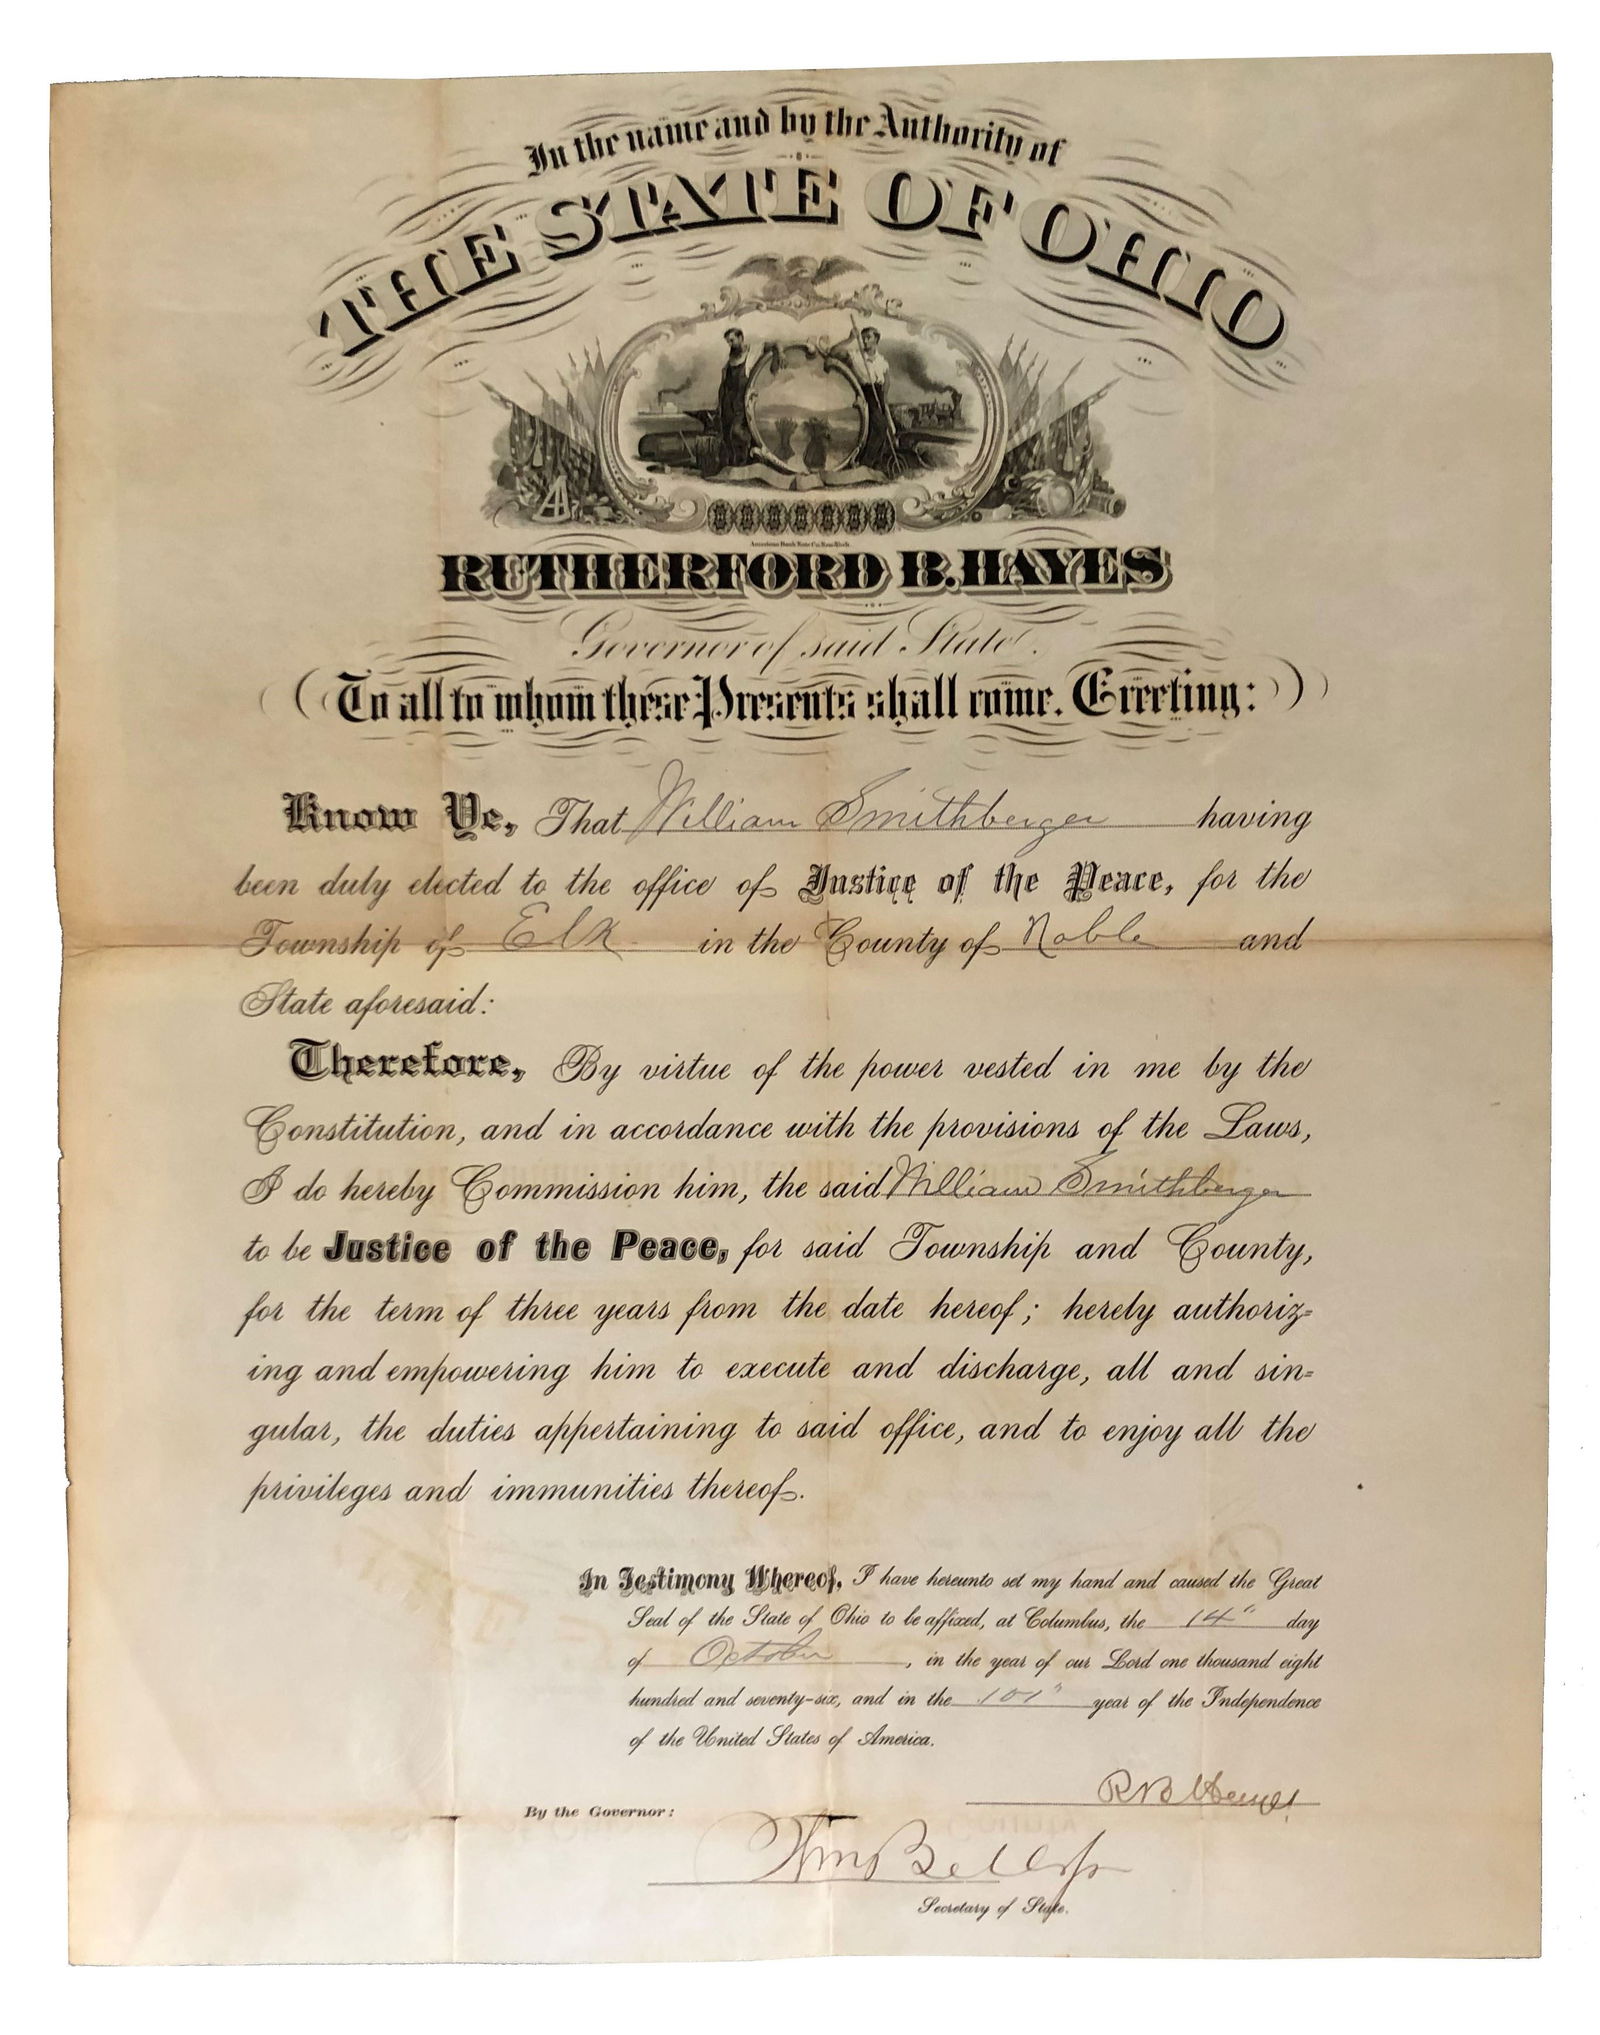 In the name and by the Authority of
THE STATE OF OHIO
American Bank Note Co. New York.
RUTHERFORD B. HAYES
Governor of said State.
To all to whom these Presents shall come, Greeting:
Know Ye, That William Smithberger having
been duly elected to the office of Justice of the Peace, for the
Township of Elk in the County of Noble and
State aforesaid:
Therefore, By virtue of the power vested in me by the
Constitution, and in accordance with the provisions of the Laws,
I do hereby Commission him, the said William Smithberger
to be Justice of the Peace, for said Township and County,
for the term of three years from the date hereof; hereby authoriz=
ing and empowering him to execute and discharge, all and sin=
gular, the duties appertaining to said office, and to enjoy all the
privileges and immunities thereof.
In Testimony Whereof, I have hereunto set my hand and caused the Great
Seal of the State of Ohio to be affixed, at Columbus, the 14" day
of October, in the year of our Lord one thousand eight
hundred and seventy-six, and in the 101" year of the Independence
of the United States of America.
R B Hayes
By the Governor:
Wm Bell Jr
Secretary of State.